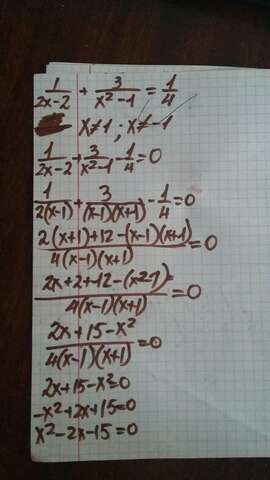 1/(2x-2) + 3/(x²-1) = 1/4
x≠1 ; x≠-1
1/(2x-2) + 3/(x²-1) - 1/4 = 0
1/(2(x-1)) + 3/((x-1)(x+1)) - 1/4 = 0
(2(x+1)+12-(x-1)(x+1))/(4(x-1)(x+1)) = 0
(2x+2+12-(x²-1))/(4(x-1)(x+1)) = 0
(2x+15-x²)/(4(x-1)(x+1)) = 0
2x+15-x²=0
-x²+2x+15=0
x²-2x-15=0